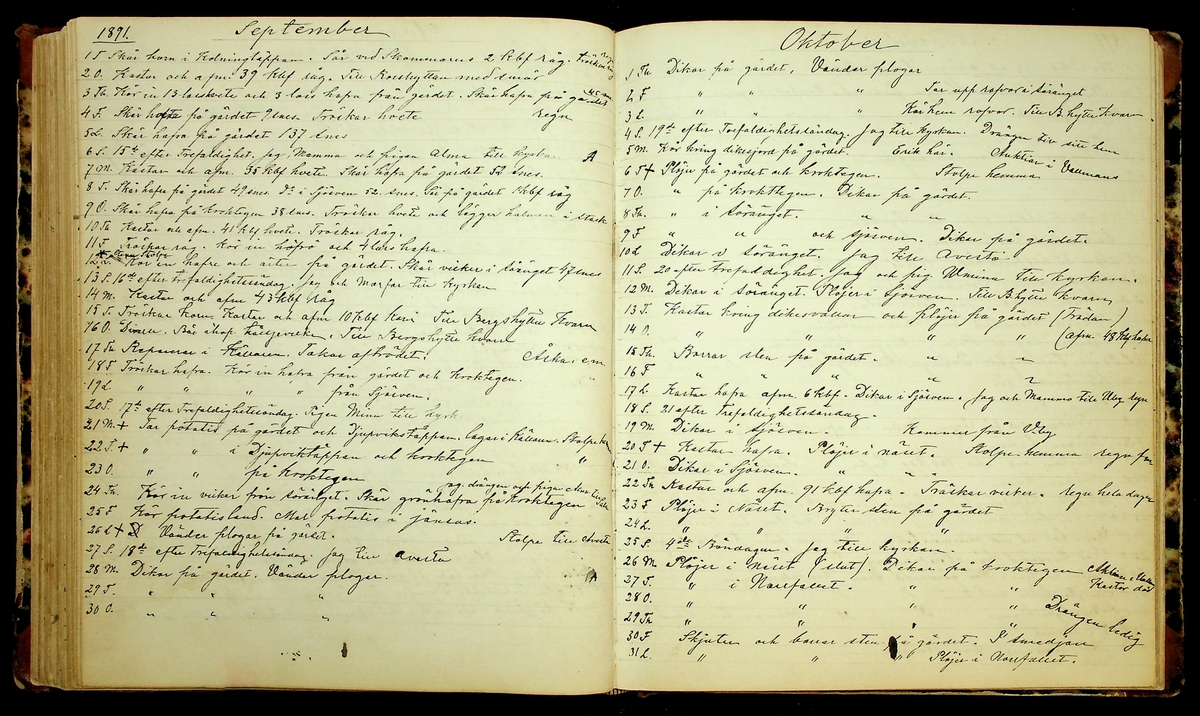 1891. September
1 T Skär korn i Kolningtäppan. Sår vid Skommarens 2 kbf råg. Tröskar råg
2 O. Kastar och afm. 39 kbf råg. Till Roshyttan med
3 Th. Kör in 13 lass hvete och 3 lass hafra från gärdet. Skär hafra på gärdet
4 F. Skär hafra på gärdet 9 lass. Tröskar hvete regn
5 L. Skär hafra på gärdet 137 snes
6 S. 15de efter Trefaldighet. jag, Mamma och pigan Alma till kyrkan.
7 M. Kastar och afm. 35 kbf hvete. Skär hafra på gärdet 52 snes.
8 T. Skär hafra på gärdet 49 snes. Do i Sjösven 52. snes. på gärdet kbf råg
9 O. Skär hafra på Kroktegen 38 snes. Tröskar hvete och lägger halmen i stack
10 Th Kastar och afm. 41 kbf hvete. Tröskar råg.
11 F. Tröskar råg. Kör in höfrö och 4 lass hafra.
12 L. Kör in hafre och ärter på gärdet. Skär vicker i Söränget 47 snes
13 S. 16de efter trefaldighetssöndag. jag och Morfar till Kyrkan
14 M. Kastar och afm 43 kbf råg
15 T. Tröskar korn, Kastar och afm 10 kbf korn Till Bergshytte Kvarn
16 O. Do. Till Bergshytte kvarn
17 Th Reparerar i Källaren. Takar afträdet. Åska. e.m
18 F Tröskar hafra. Kör in hafra från gärdet och Kroktegen. "
19 L. " " " från Sjösven.
20 S. 17de efter Trefaldighetssöndag. Pigan Mina till kyrk
21 M. + Tar potatis på gärdet och Djupvikstäppan. lagar i Källaren. Stolpe
22 T. + " " i Djupvikstäppan och kroktegen "
23 O. " " på Kroktegen
24 Th. Kör in vicker från Söränget. Skär grönhafra på Kroktegen jag, drängen och pigan
25 F Kör potatisland. Mat potatis i
26 L + Vänder plogar på gärdet. Stolpe till Avesta
27 S. 18de efter Trefaldighetssöndag. jag till Avesta
28 M. Dikar på gärdet. Vänder plogar.
29 T. " " "
30 O. " " "
Oktober
1 Th Dikar på gärdet, Vänder plogar
2 F " " " Tar upp rofvor i Söränget
3 L. " " " Kör hem rofvor. Till B.hytte kvarn
4 S. 19de efter Trefaldighetssöndag. Jag till Kyrkan. Drängen till sitt hem
5 M. Kör kring dikesjord på gärdet. Erik här. Auktion i Vallmans
6 T + Plöjer på gärdet och kroktegen. Stolpe hemma
7 O. " på kroktegen. Dikar på gärdet.
8 Th. " i Söränget. " "
9 F " " och Sjösven. Dikar på gärdet.
10 L Dikar i Söränget. Jag till Avesta
11 S. 20 efter trefaldighet. Jag och pig. Till kyrkan.
12 M. Dikar i Söränget. Plöjer i Sjösven. Till B.hytte kvarn
13 T. Kastar kring dikesvallar och plöjer på gärdet (Trädan)
14 O. " " " (afm. 48 kbf hafra
15 Th. Barrar sten på gärdet. " "
16 F " " " "
17 L. Kastar hafra afm. 6 kbf. Dikar i Sjösven. Jag och Mamma till regn
18 S. 21 efter Trefaldighetssöndag.
19 M Dikar i Sjösven. Kommer från
20 T + Kastar hafra. Plöjer i Näset. Stolpe hemma regn
21 O. Dikar i Sjösven. " "
22 Th Kastar och afm. 91 kbf hafra. Tröskar vicker. regn hela dagen
23 F Plöjer i Näset. Bryter sten på gärdet
24 L. " " "
25 S. 4de Böndagen. Jag till kyrkan.
26 M Plöjer i Näset (slut). Dikar på kroktegen Auktion i
27 T. " i Norrfallet. " "
28 O. " " "
29 Th " " " Drängen ledig
30 F Skjuter och barrar sten på gärdet. I smedjan
31 L. " " " Plöjer i Norrfallet.